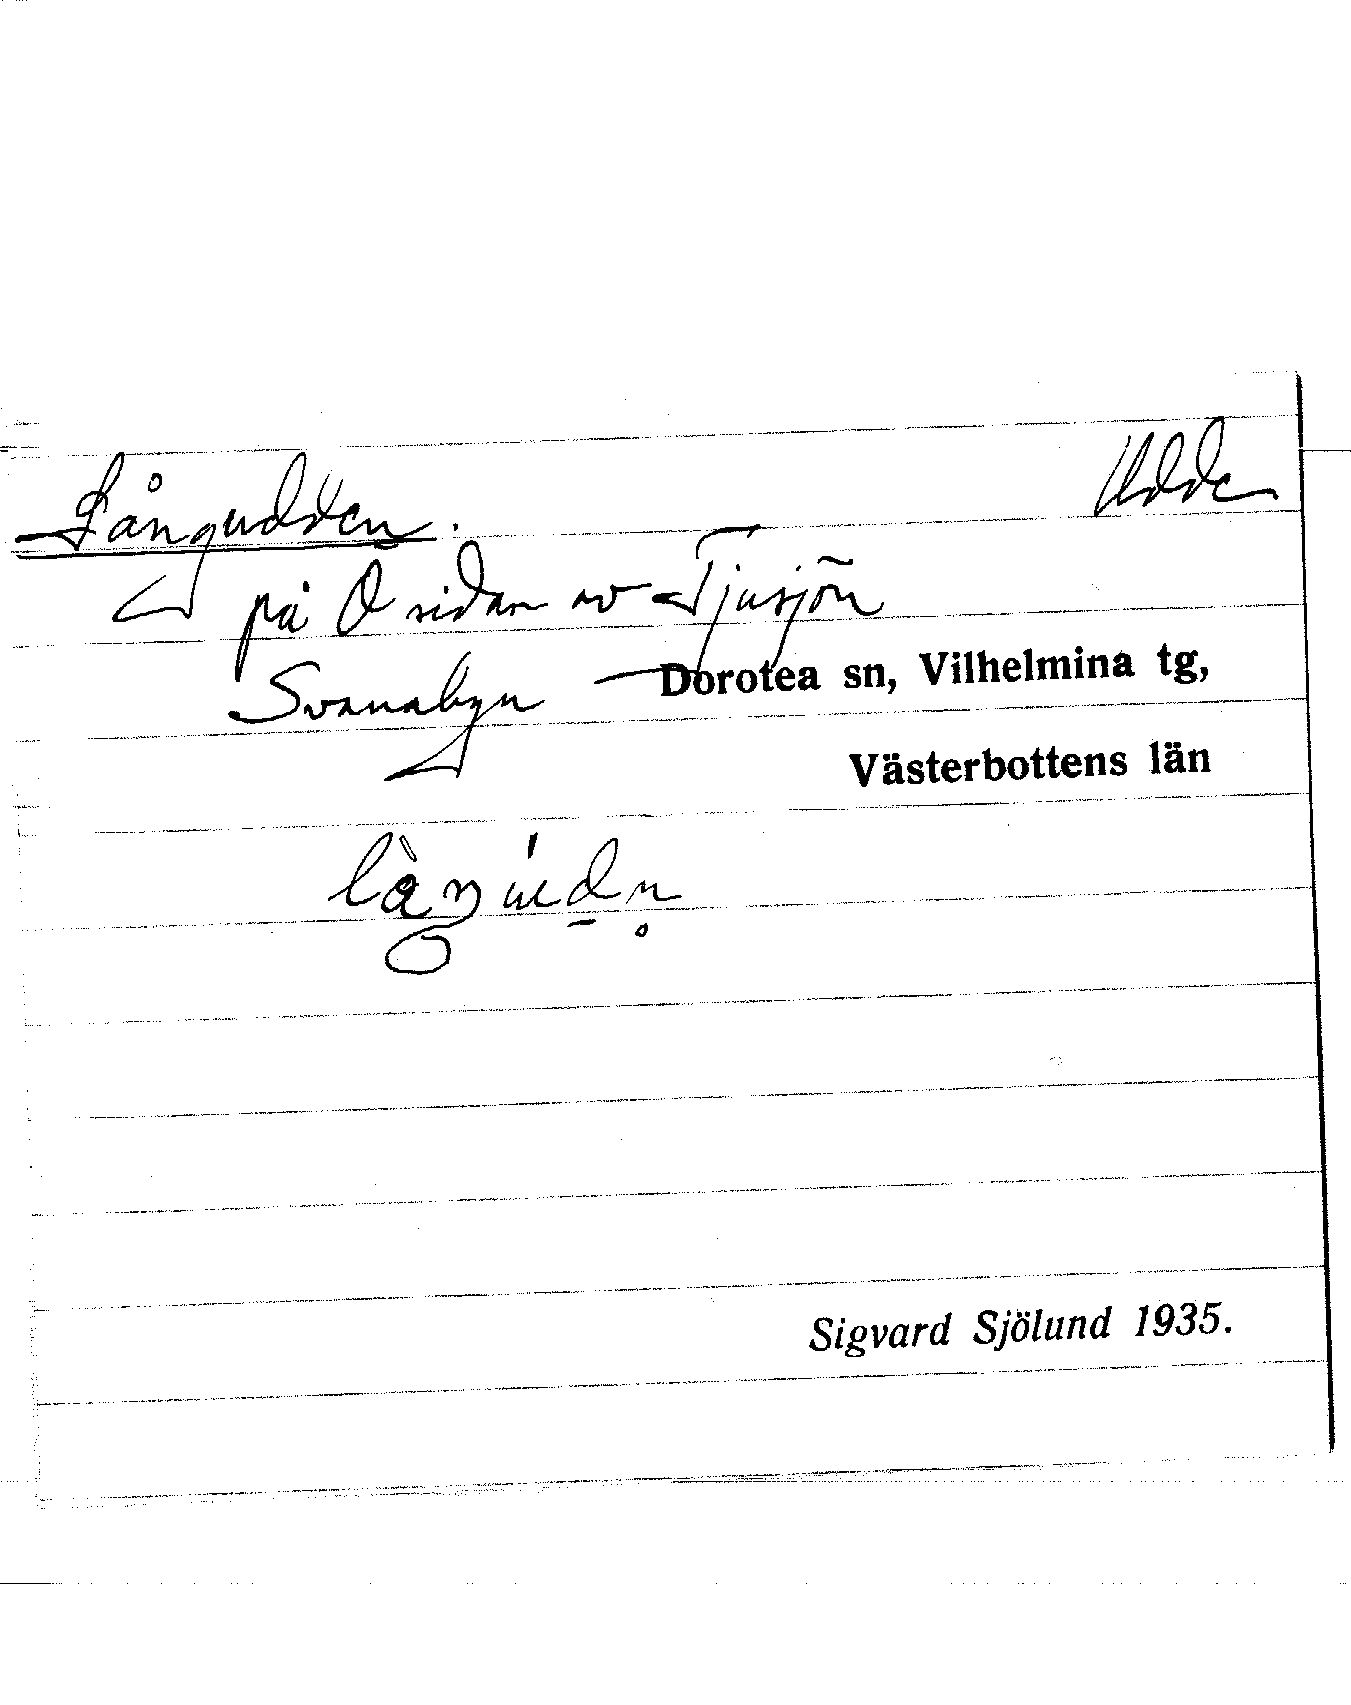 Långudden. Udde
på O sidan av Tjusjön
Svanabyn
Dorotea sn, Vilhelmina tg,
Västerbottens län
Sigvard Sjölund 1935.